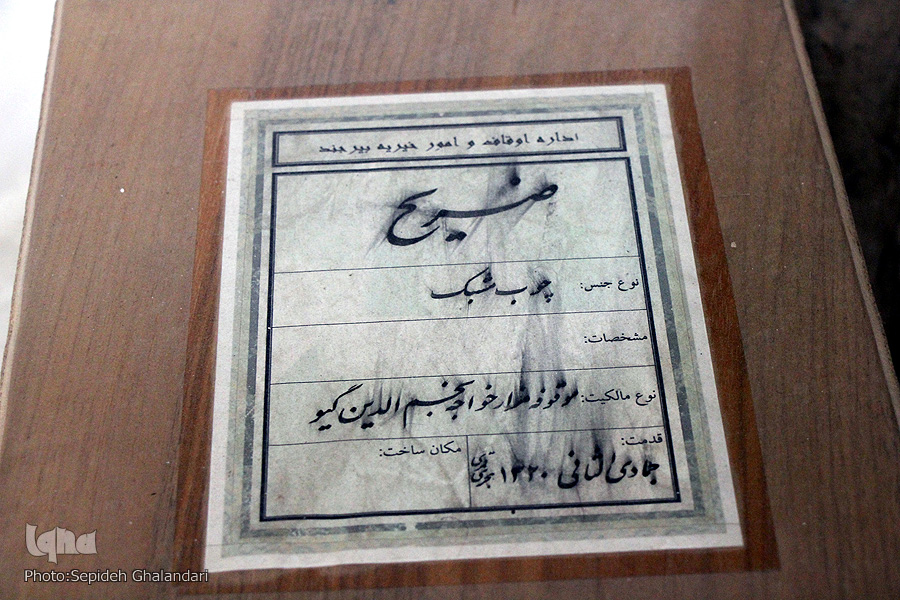 اداره اوقاف و امور خیریه بیرجند
ضریح
نوع جنس: چوب مشبک
مشخصات:
نوع مالکیت: موقوفه مزار خواجه نجم الدین گیو
قدمت: جمادی الثانی ۱۳۲۰ هجری قمری
مکان ساخت:
Iqna
Photo:Sepideh Ghalandari